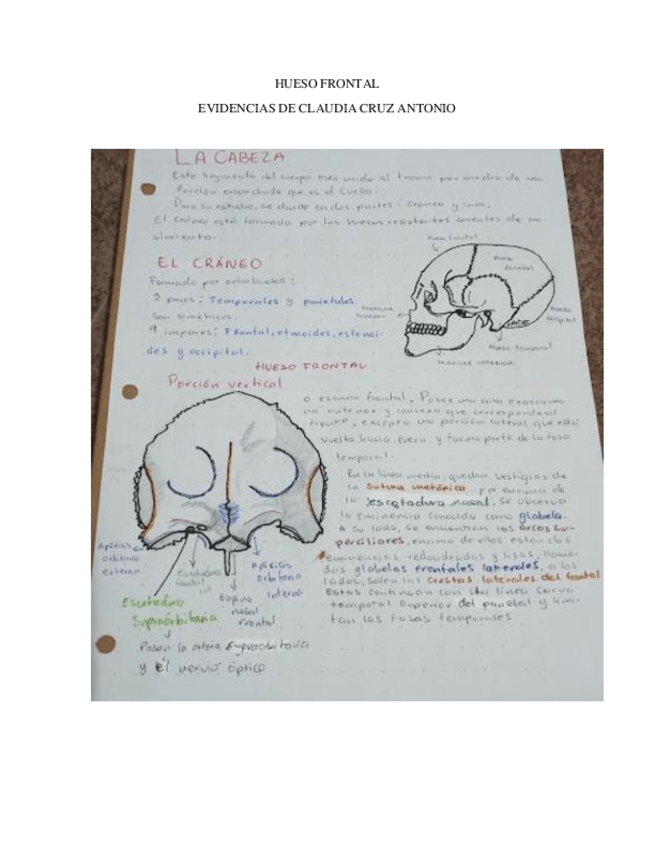 HUESO FRONTAL
EVIDENCIAS DE CLAUDIA CRUZ ANTONIO
LA CABEZA
Este segmento del cuerpo está unido al tronco por medio de una
porción redondeada que es el cuello.
Para su estudio, se divide en dos partes: cráneo y cara.
El cráneo está formado por los huesos resistentes carentes de mo-
vimiento.
EL CRÁNEO
Formado por ocho huesos:
2 pares: Temporales y parietales
son simétricos.
4 impares: Frontal, etmoides, esfenoi-
des y occipital.
Hueso frontal
Hueso
parietal
Hueso
occipital
Hueso temporal
Maxilar inferior
Maxilar
superior
HUESO FRONTAL
Porción vertical
o escama frontal. Posee una cara exocranea-
na anterior y convexa que corresponde al
frente, excepto una porción lateral que está
vuelta hacia fuera y forma parte de la fosa
temporal.
En la línea media, quedan vestigios de
la sutura metópica por encima de
la escotadura nasal, se observa
la eminencia conocida como glabela.
A su lado, se encuentran los arcos su-
perciliares, encima de ellos están dos
eminencias redondeadas y lisas, llama-
das glabelas frontales laterales, a los
lados, salen las crestas laterales del frontal
Estas continúan con una línea curva
temporal superior del parietal y limi-
tan las fosas temporales
Apófisis
orbitaria
externa
Escotadura
frontal
Apófisis
orbitaria
interna
Espina
nasal
frontal
Escotadura
Supraorbitaria
Pasan la arteria supraorbitaria
y el nervio óptico